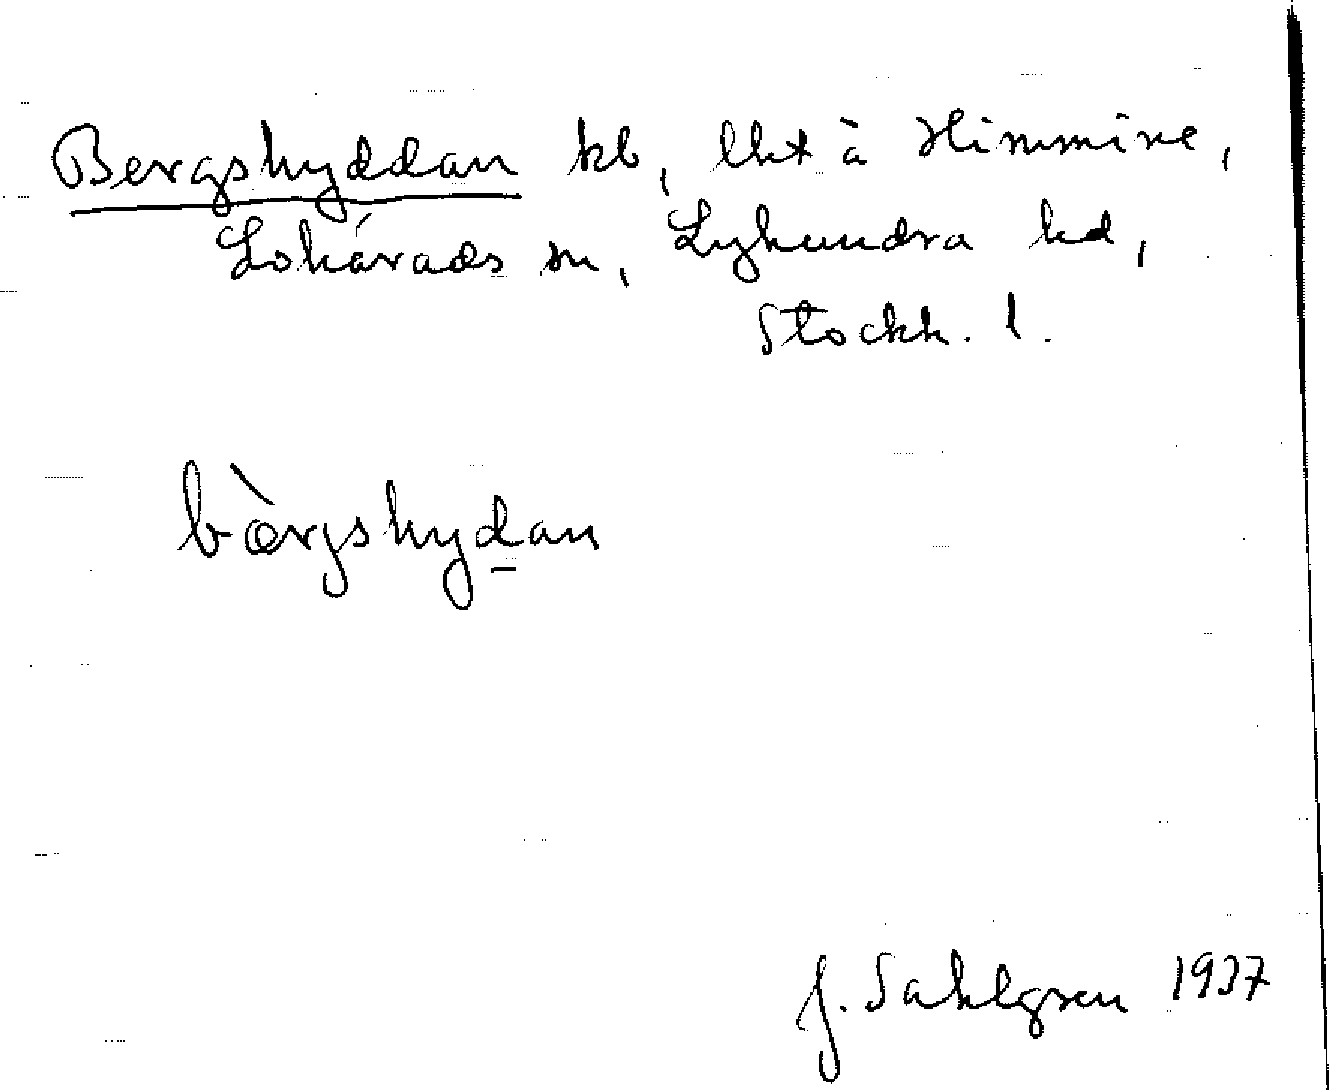 Bergshyddan kb, lht à Himmine,
Lohärads sn, Lyhundra hd,
Stockh. l.
bæ̀rgshydan
J. Sahlgren 1937